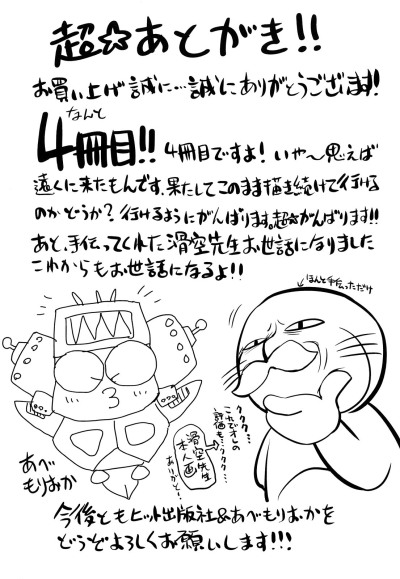 超☆あとがき!!
お買い上げ誠に…誠にありがとうございます!
なんと
4冊目!! 4冊目ですよ! いや〜思えば
遠くに来たもんです。果たしてこのまま描き続けて行ける
のかどうか? 行けるようにがんばります。超☆がんばります!!
あと、手伝ってくれた滑空先生お世話になりました
これからもお世話になるよ!!
ほんと手伝っただけ
ククク…
これでオレの
評価も…
ククク…
滑空先生
本人画
ありがと!
あべ
もりおか
今後ともヒット出版社&あべもりおかを
どうぞよろしくお願いします!!!